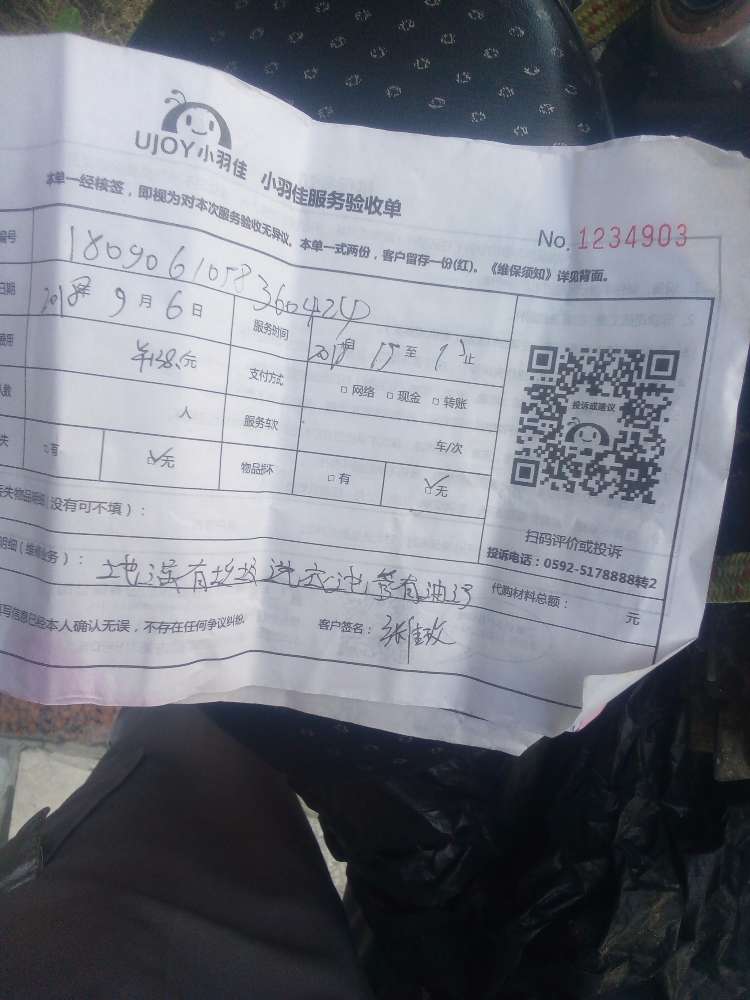 UJOY小羽佳 小羽佳服务验收单
本单一经核签,即视为对本次服务验收无异议。本单一式两份,客户留存一份(红)。《维保须知》详见背面。
No. 1234903
编号 1809061058360424
日期 2018年 9月6日 服务时间 自 15 至 止
费用 ¥138元 支付方式 □网络 □现金 □转账
人 服务车次 车/次
失 □有 ☑无 物品损坏 □有 ☑无
失物品明细(没有可不填):
明细(维修业务): 地漏有垃圾 管有油污
写信息已经本人确认无误,不存在任何争议纠纷。 客户签名:
投诉或建议
扫码评价或投诉
投诉电话:0592-5178888转2
代购材料总额: 元